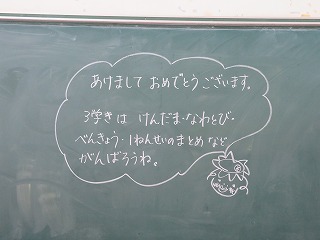 あけまして おめでとうございます。
3学きは けんだま・なわとび・
べんきょう・1ねんせいのまとめ など
がんばろうね。